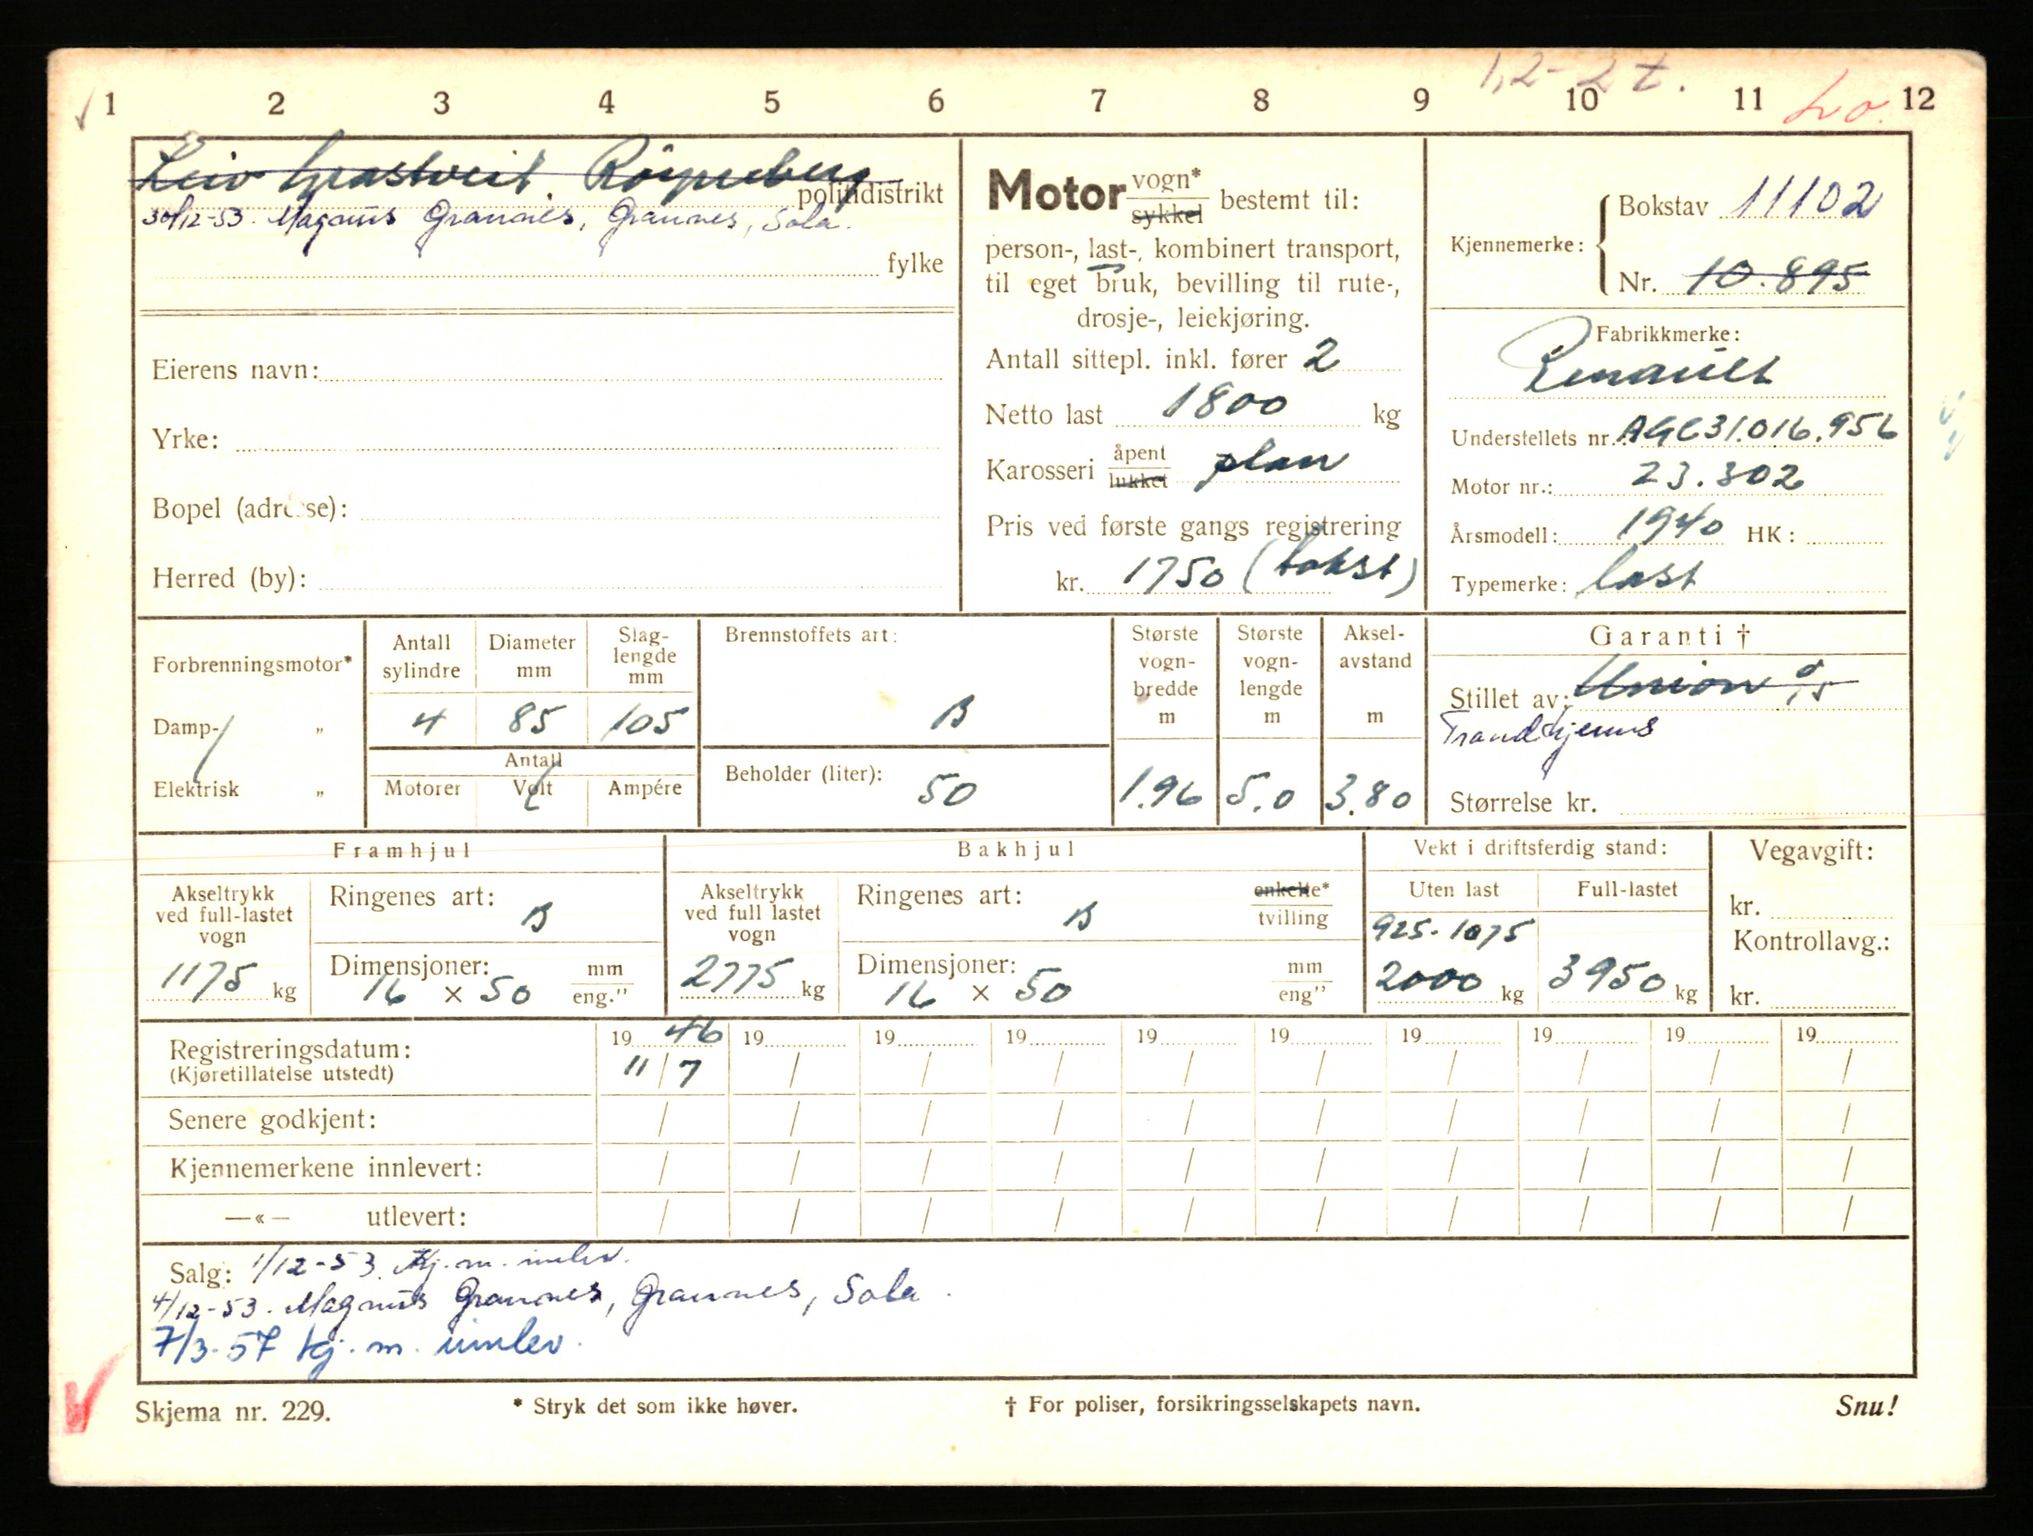 1,2-2t.
1 2 3 4 5 6 7 8 9 10 11 12
Leiv politidistrikt
30/12-53. Magnus Grannes, Grannes, Sola.
fylke
Eierens navn:
Yrke:
Bopel (adresse):
Herred (by):
Motor vogn* sykkel bestemt til:
person-, last-, kombinert transport,
til eget bruk, bevilling til rute-,
drosje-, leiekjøring.
Antall sittepl. inkl. fører 2
Netto last 1800 kg
Karosseri åpent lukket plan
Pris ved første gangs registrering
kr. 1750 (takst)
Kjennemerke:
Bokstav 11102
Nr. 10.895
Fabrikkmerke:
Renault
Understellets nr. AGC31.016.956
Motor nr.: 23.302
Årsmodell: 1940 HK:
Typemerke: last
Forbrenningsmotor*
Damp- „
Elektrisk „
Antall sylindre
Diameter mm
Slag-lengde mm
4 85 105
Antall
Motorer Volt Ampére
Brennstoffets art:
B
Beholder (liter):
50
Største vogn-bredde m
1.96
Største vogn-lengde m
5.0
Aksel-avstand m
3.80
Garanti †
Stillet av: Union
Trondhjems
Størrelse kr.
Framhjul
Akseltrykk ved full-lastet vogn
1175 kg
Ringenes art:
B
Dimensjoner: mm
16 × 50 eng.”
Bakhjul
Akseltrykk ved full lastet vogn
2775 kg
Ringenes art: enkelte* tvilling
B
Dimensjoner: mm
16 × 50 eng”
Vekt i driftsferdig stand:
Uten last Full-lastet
925-1075
2000 kg 3950 kg
Vegavgift:
kr.
Kontrollavg.:
kr.
19 46 19 19 19 19 19 19 19 19 19
Registreringsdatum: 11/7
(Kjøretillatelse utstedt)
Senere godkjent:
Kjennemerkene innlevert:
—«— utlevert:
Salg: 1/12-53. Kj. m. innlev.
4/12-53. Magnus Grannes, Grannes, Sola.
7/3-57 kj. m. innlev.
Skjema nr. 229.
* Stryk det som ikke høver.
† For poliser, forsikringsselskapets navn.
Snu!